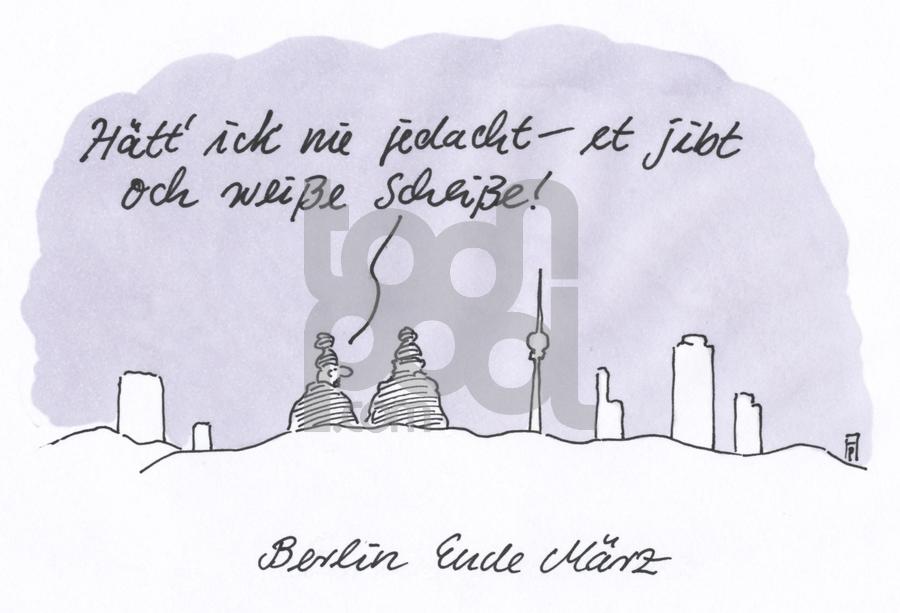 Hätt' ick nie jedacht – et jibt
och weiße Scheiße!
toon
pool
.com
Berlin Ende März